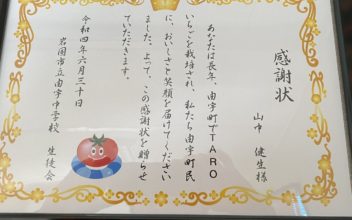 感謝状
山中 健生様
あなたは長年、由宇町でTARO
いちごを栽培され、私たち由宇町民
に、おいしさと笑顔を届けてください
ました。よって、この感謝状を贈らせ
ていただきます。
令和四年六月三十日
岩国市立由宇中学校 生徒会